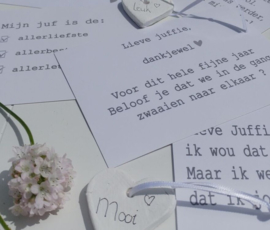 Mijn juf is de:
allerliefste
allerbes
allerleu
Lieve juffie,
dankjewel
Voor dit hele fijne jaar
Beloof je dat we in de gang
zwaaien naar elkaar ?
ieve Juffi
ik wou dat
Maar ik we
dat ik jo
Mooi